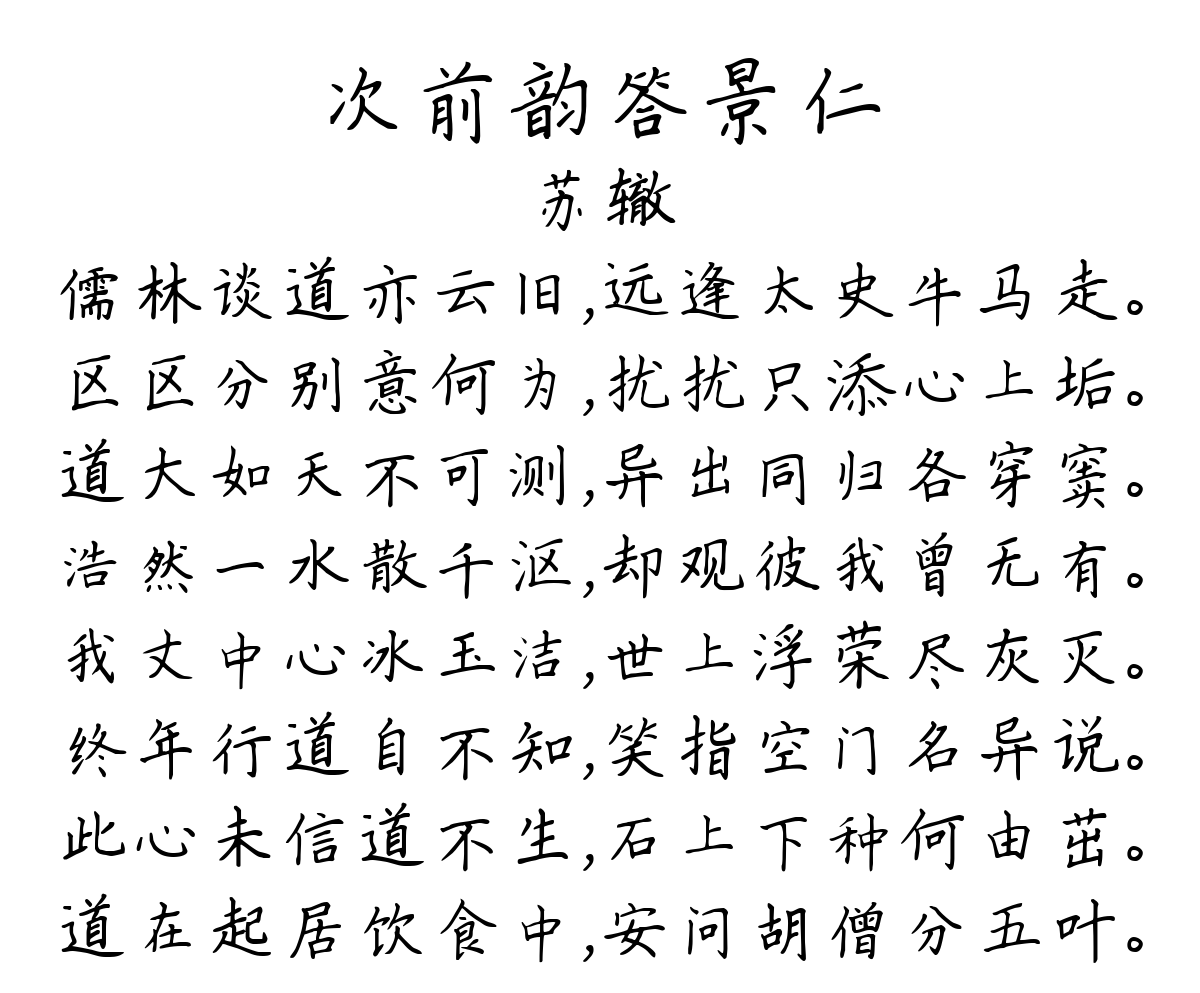 次前韵答景仁
苏辙
儒林谈道亦云旧,远逢太史牛马走。
区区分别意何为,扰扰只添心上垢。
道大如天不可测,异出同归各穿窦。
浩然一水散千沤,却观彼我曾无有。
我丈中心冰玉洁,世上浮荣尽灰灭。
终年行道自不知,笑指空门名异说。
此心未信道不生,石上下种何由茁。
道在起居饮食中,安问胡僧分五叶。